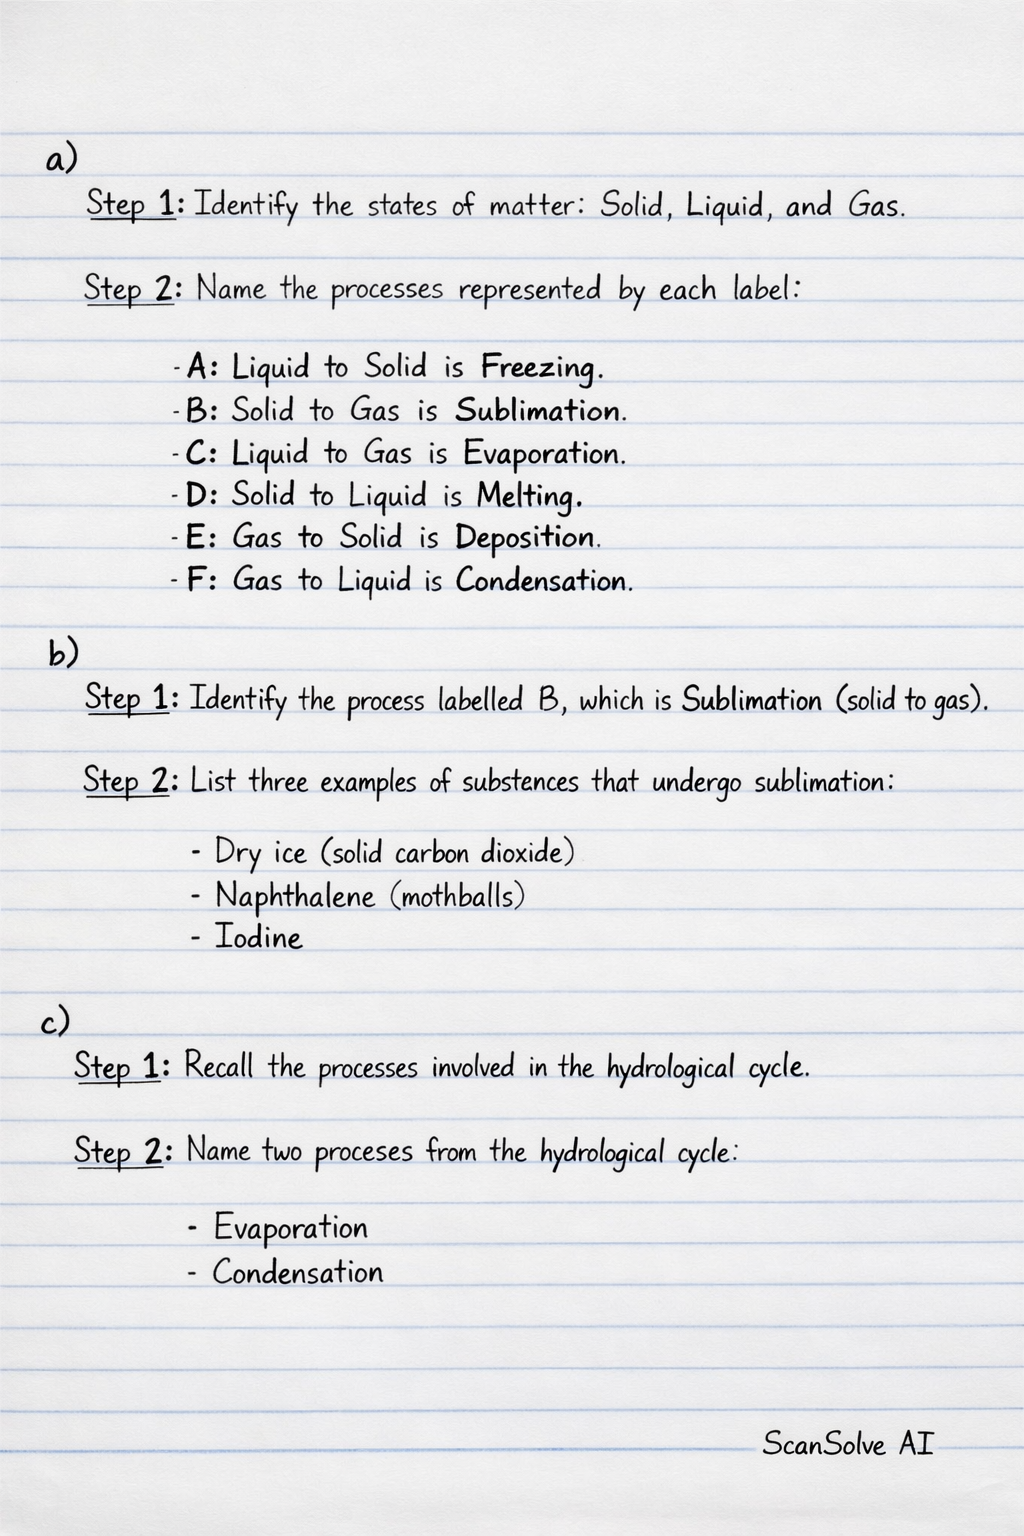 a)
Step 1: Identify the states of matter: Solid, Liquid, and Gas.
Step 2: Name the processes represented by each label:
- A: Liquid to Solid is Freezing.
- B: Solid to Gas is Sublimation.
- C: Liquid to Gas is Evaporation.
- D: Solid to Liquid is Melting.
- E: Gas to Solid is Deposition.
- F: Gas to Liquid is Condensation.
b)
Step 1: Identify the process labelled B, which is Sublimation (solid to gas).
Step 2: List three examples of substences that undergo sublimation:
- Dry ice (solid carbon dioxide)
- Naphthalene (mothballs)
- Iodine
c)
Step 1: Recall the processes involved in the hydrological cycle.
Step 2: Name two proceses from the hydrological cycle:
- Evaporation
- Condensation
ScanSolve AI